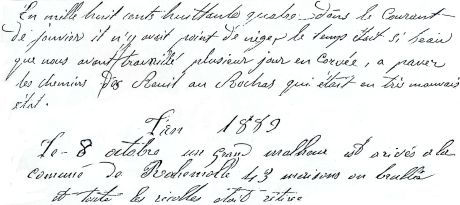 En mille huit cents huittante quatre dans le courant
de janvier il n'y avait point de neige, le temps était si beau
que nous avont travaillé plusieur jour en corvée, a paver
les chemins des Reuil au Rochas qui était en très mauvais
état.
L'an 1889
Le 8 octobre un grand malheur est arivés a la
comune de 43 maisons on brullés
et toute les recoltes était rétrée